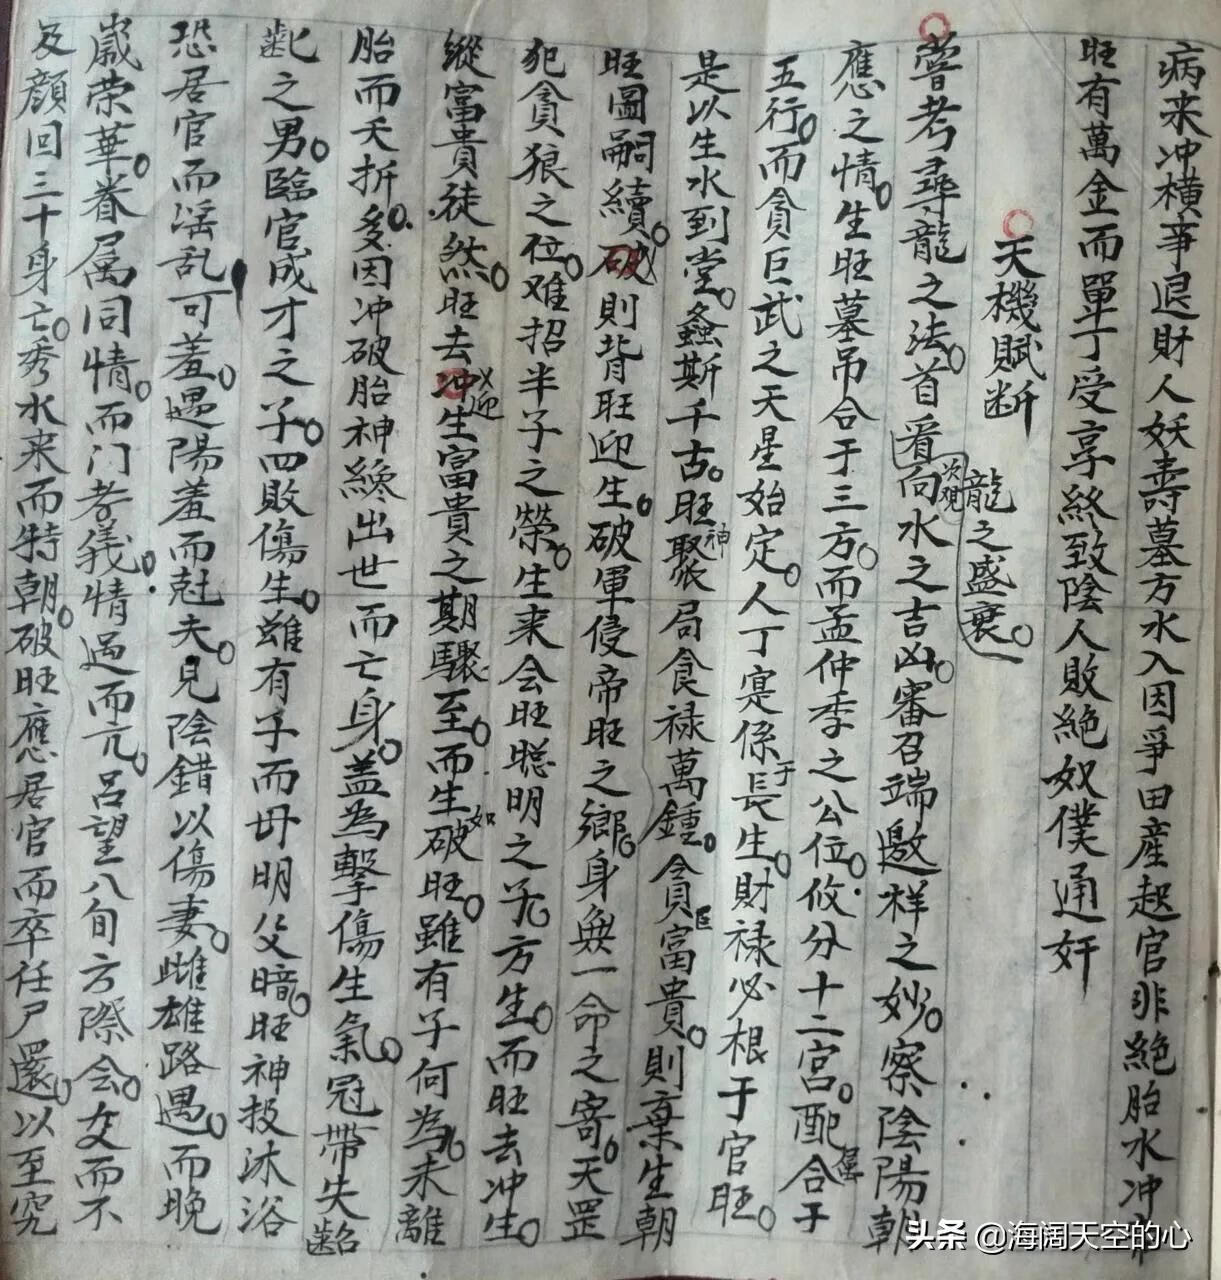 病来冲横爭退財人妖壽墓方水入因爭田產起官非絕胎水冲
旺有萬金而單丁受享終致陰人敗絕奴僕通奸
天機賦斷
龍之盛衰。
嘗考尋龍之法。首看向水之吉凶。審召端邀祥之妙。察陰陽朝
次觀
應之情。生旺墓吊合于三方。而孟仲季之公位。攸分十二宮。配合于
五行。而貪巨武之天星始定。人丁寔係于長生。財禄必根于官旺。
是以生水到堂。螽斯千古。旺神聚局食禄萬鍾。貪巨富貴。則棄生朝
旺圖嗣續。破則背旺迎生。破軍侵帝旺之鄉。身無一命之寄。天罡
犯貪狼之位。难招半子之榮。生来会旺聪明之子方生。而旺去冲生。
縱富貴徒然。旺去迎生富貴之期驟至。而生如破旺。雖有子何為。未離
胎而夭折多。因冲破胎神纔出世而亡身。盖為擊傷生氣。冠帶失
齔之男。臨官成才之子。四敗傷生。雖有子而母明父暗。旺神投沐浴
恐居官而滛乱可羞。遇陽羞而尅夫。見陰錯以傷妻。雌雄路遇。而晚
歲荣華。眷属同情。而门孝義。情過而亢。呂望八旬方際会。交而不
及顔回三十身亡。秀水来而特朝。破旺應居官而卒任尸還。以至究
头条 @海阔天空的心